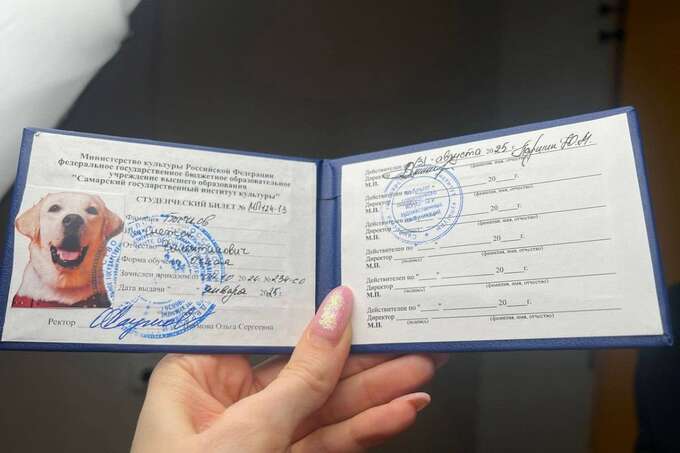 Министерство культуры Российской Федерации
федеральное государственное бюджетное образовательное
учреждение высшего образования
"Самарский государственный институт культуры"
СТУДЕНЧЕСКИЙ БИЛЕТ №
Фамилия
Отчество Валентинович
Форма обучения очная
Зачислен приказом от
Дата выдачи января 2025г.
Ректор Наумова Ольга Сергеевна
Действителен по "31" августа 2025г.
Директор
(подпись) (фамилия, имя, отчество)
М.П.
Действителен по " " 20 г.
Директор
(подпись) (фамилия, имя, отчество)
М.П.
Действителен по " " 20 г.
Директор
(подпись) (фамилия, имя, отчество)
М.П.
Действителен по " " 20 г.
Директор
(подпись) (фамилия, имя, отчество)
М.П.
Действителен по " " 20 г.
Директор
(подпись) (фамилия, имя, отчество)
М.П.